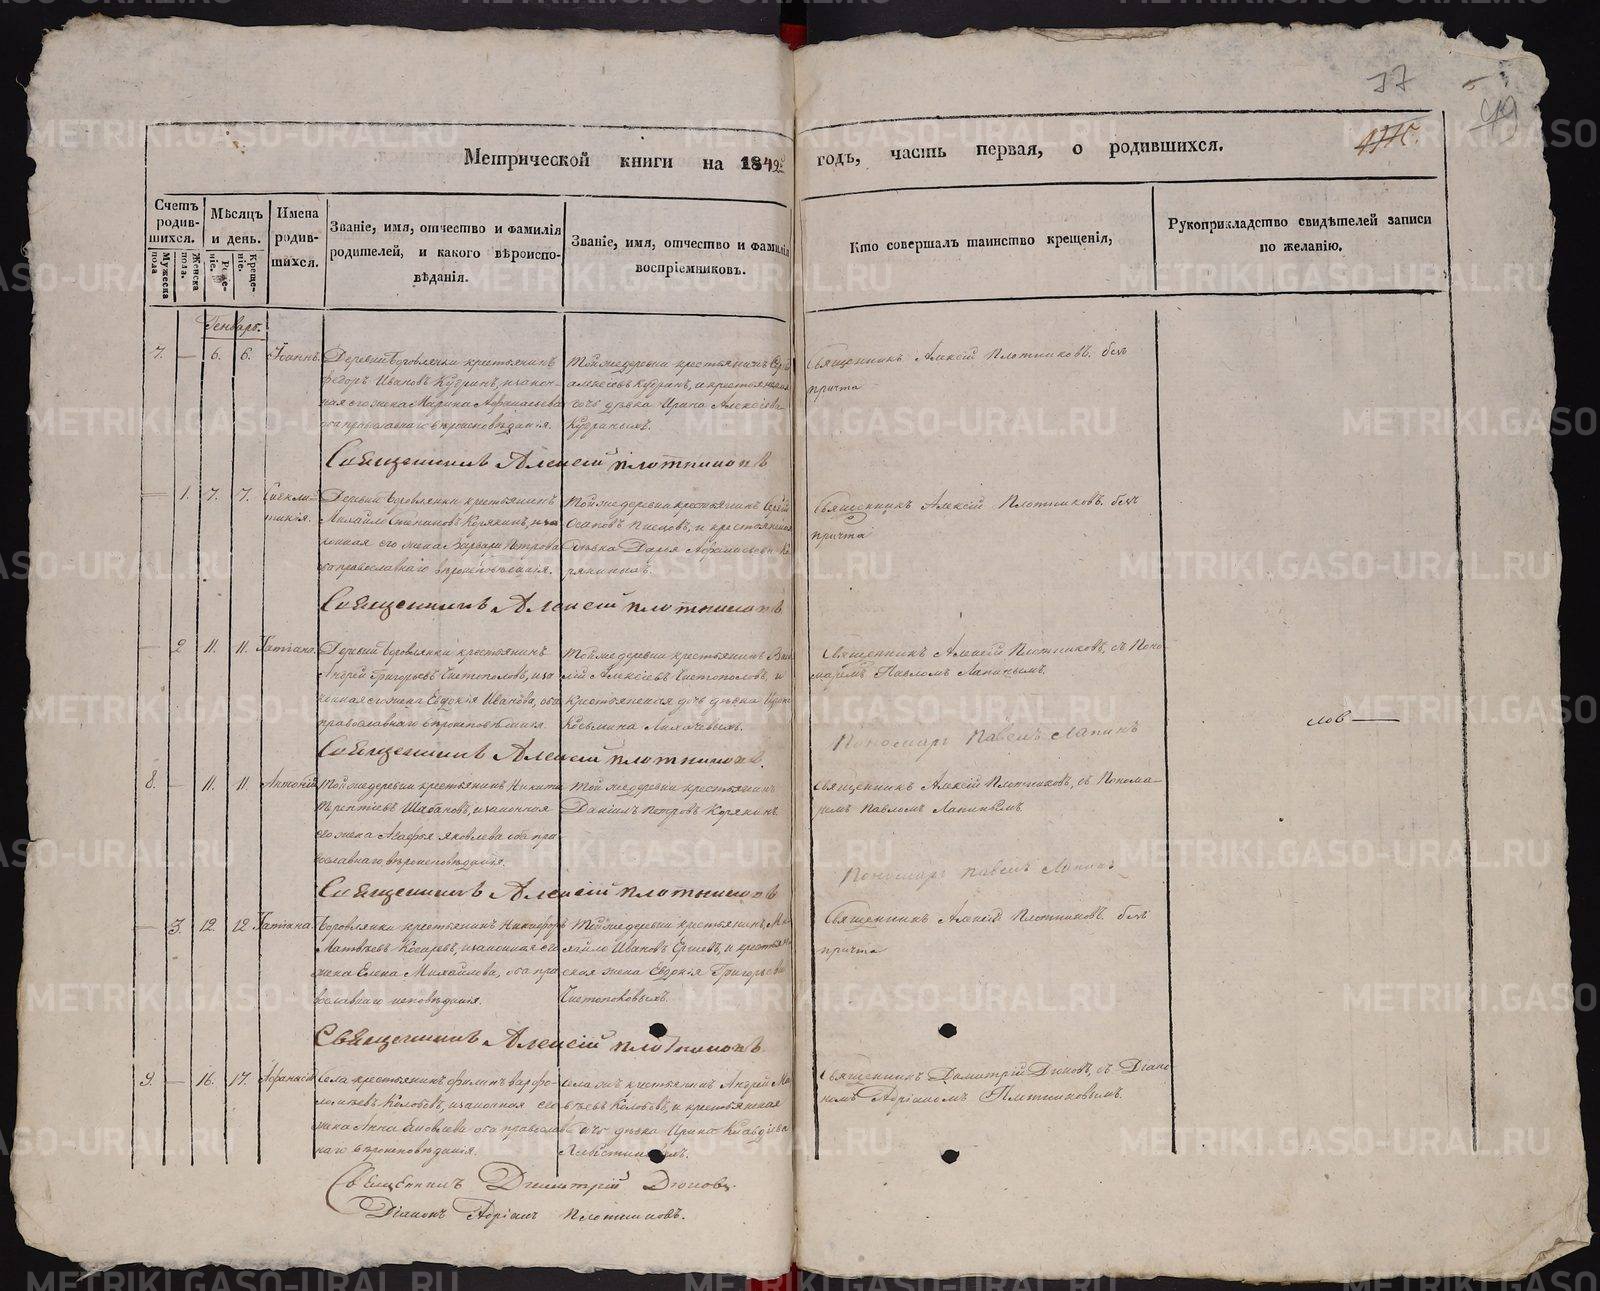 77
49
Метрической книги на 1842й годъ, часть первая, о родившихся.
Счетъ родившихся.
Мужеска пола
Женска пола.
Мѣсяцъ и день.
Рожденіе.
Крещеніе.
Имена родившихся.
Званіе, имя, отчество и фамилія родителей, и какого вѣроисповѣданія.
Званіе, имя, отчество и фамилія воспріемниковъ.
Кто совершалъ таинство крещенія,
Рукоприкладство свидѣтелей записи по желанію.
Генварь.
7. — 6. 6. Іоаннъ.
Деревни Боровлянки крестьянинъ
Федоръ Ивановъ Кудринъ, и закон-
ная его жена Марина Афанасьева
оба православнаго вѣроисповѣданія.
Тойже деревни крестьянинъ
Алексѣевъ Кудринъ, и крестьянская
дочь дѣвка Ирина Алексѣева
Кудриныхъ.
Священникъ Алексій Плотниковъ. безъ
причта
Священникъ Алексій Плотниковъ
— 1. 7. 7. Синкли-
тикія.
Деревни Боровлянки крестьянинъ
Михайло Степановъ Корякинъ, и за
конная его жена Варвара Петрова
оба православнаго вѣроисповѣданія.
Тойже деревни крестьянинъ Сергій
Осиповъ Писцовъ, и крестьянская
дѣвка Дарья Афанасьева Ко
рякиныхъ.
Священникъ Алексій Плотниковъ. безъ
причта
Священникъ Алексій Плотниковъ
— 2 11. 11. Татіана.
Деревни Боровлянки крестьянинъ
Андрей Григорьевъ Чистополовъ, и за
конная его жена Евдокія Иванова, оба
православнаго вѣроисповѣданія
Тойже деревни крестьянинъ Васи
лій Алексѣевъ Чистополовъ, и
крестьянская дочь дѣвка Ирина
Козьмина Лихачевыхъ.
Священникъ Алексій Плотниковъ, съ Поно
маремъ Павломъ Лапинымъ.
Пономарь Павелъ Лапинъ
лов —
Священникъ Алексій Плотниковъ.
8. — 11. 11. Антоній
Тойже деревни крестьянинъ Никита
Терентьевъ Шабановъ, и законная
его жена Агафья Яковлева оба пра
вославнаго вѣроисповѣданія.
Тойже деревни крестьянинъ
Даніилъ Петровъ Корякинъ.
Священникъ Алексій Плотниковъ, съ Понома-
ремъ Павломъ Лапинымъ
Пономарь Павелъ Лапинъ
Священникъ Алексій Плотниковъ
— 3. 12. 12 Татіана.
Боровлянки крестьянинъ Никифоръ
Матвѣевъ Косаревъ, и законная его
жена Елена Михайлова, оба пра
вославнаго исповѣданія.
Тойже деревни крестьянинъ, Ми
хайло Ивановъ, и крестьян
ская жена Евдокія Григорьева
Чистополовыхъ.
Священникъ Алексій Плотниковъ. безъ
причта
Священникъ Алексій Плотниковъ.
9. — 16. 17. Афанасій
Села крестьянинъ Филипъ Варфо-
ломѣевъ Колобовъ, и законная его
жена Анна оба православ
наго вѣроисповѣданія.
Села онъ крестьянинъ Андрей Ма
твѣевъ Колобовъ, и крестьянская
дочь дѣвка Ирина
Священникъ Димитрій Дюковъ, съ Діако
номъ Адріаномъ Плотниковымъ.
Священникъ Димитрій Дюковъ.
Діаконъ Адріанъ Плотниковъ.
METRIKI.GASO-URAL.RU